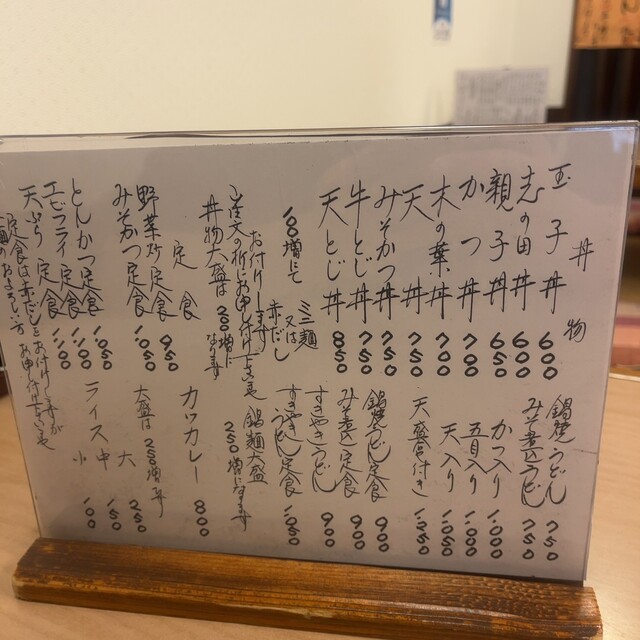 丼物
玉子丼 600
志の田丼 600
親子丼 650
かつ丼 700
木の葉丼 700
天丼 700
みそかつ丼 750
牛とじ丼 750
天とじ丼 850
100増にて ミニ麺
又は
赤だし
お付けします
ご注文の折にお申し付け下さい
丼物大盛は200増になります
定食
野菜炒定食 950
みそかつ定食 1050
とんかつ定食 1050
エビフライ定食 1100
天ぷら定食 1100
定食は赤だしをお付けしますが
麺のおよろしい方お申し付け下さい
鍋焼うどん 750
みそ煮込うどん 750
かつ入り 1,000
五目入り 1,050
天入り 1,050
天盛合付き 1,250
鍋焼うどん定食 900
みそ煮込定食 900
すきやきうどん 900
すきやきうどん定食 1050
鍋麺大盛
250増になります
カツカレー 800
大盛は250増
ライス 大 250
中 150
小 100